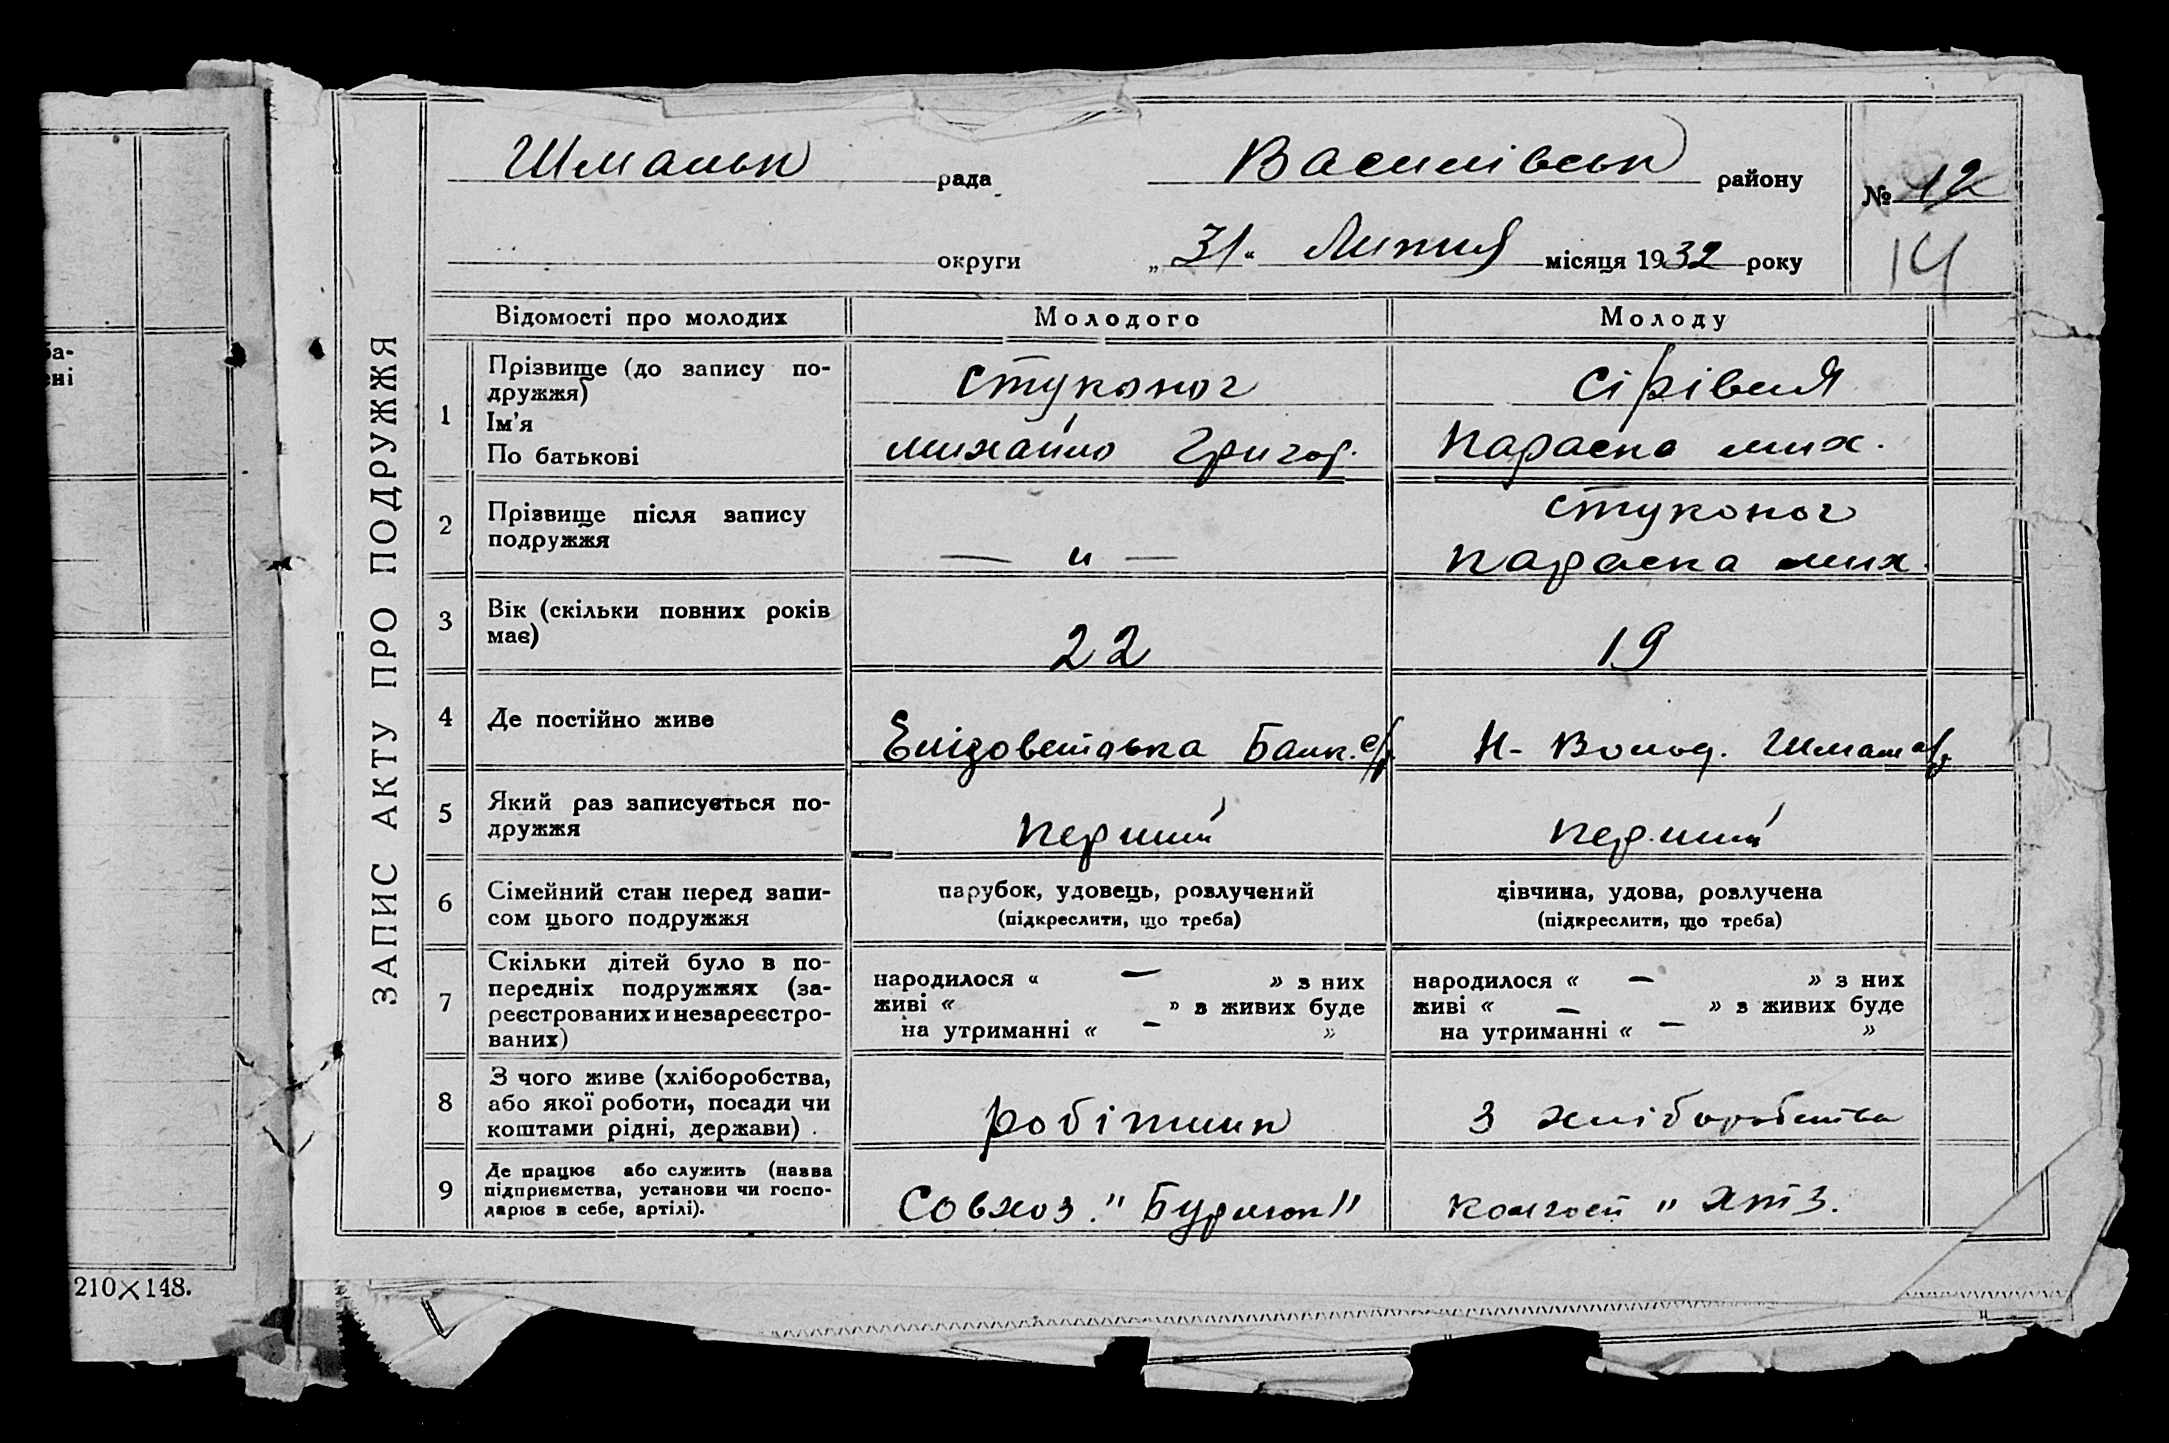 ба-
ені
210×148.
ЗАПИС АКТУ ПРО ПОДРУЖЖЯ
Шмальк рада Василівськ району № 12
округи „31“ Липня місяця 1932 року 14
Відомості про молодих Молодого Молоду
1 Прізвище (до запису по-
дружжя)
Ім'я
По батькові
Стуконог
Михайло Григор.
Сірівля
Параска мих.
2 Прізвище після запису
подружжя
— „ —
Стуконог
Параска мих.
3 Вік (скільки повних років
має)
22
19
4 Де постійно живе
Елізоветовка Балк. с/р
Н- Волод. Шмат с/р
5 Який раз записується по-
дружжя
перший
перший
6 Сімейний стан перед запи-
сом цього подружжя
парубок, удовець, розлучений
(підкреслити, що треба)
дівчина, удова, розлучена
(підкреслити, що треба)
7 Скільки дітей було в по-
передніх подружжях (за-
реєстрованих и незареєстро-
ваних)
народилося « — » з них
живі « » з живих буде
на утриманні « — »
народилося « — » з них
живі « — » з живих буде
на утриманні « — »
8 З чого живе (хліборобства,
або якої роботи, посади чи
коштами рідні, держави)
робітник
З хліборобства
9 Де працює або служить (назва
підприємства, установи чи госпо-
дарює в себе, артілі).
Совхоз. "
колгосп " ХТЗ.